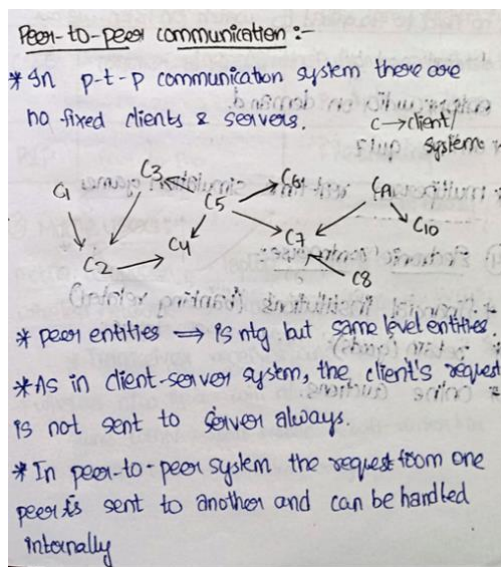 Peer-to-peer communication :-
* In p-t-p communication system there are
no fixed clients & servers.
C → client/
system
C1
C3
C5
C6
C9
C2
C4
C7
C10
C8
* peer entities → is ntg but same level entities
* As in client-server system, the client's request
is not sent to server always.
* In peer-to-peer system the request from one
peer is sent to another and can be handled
internally